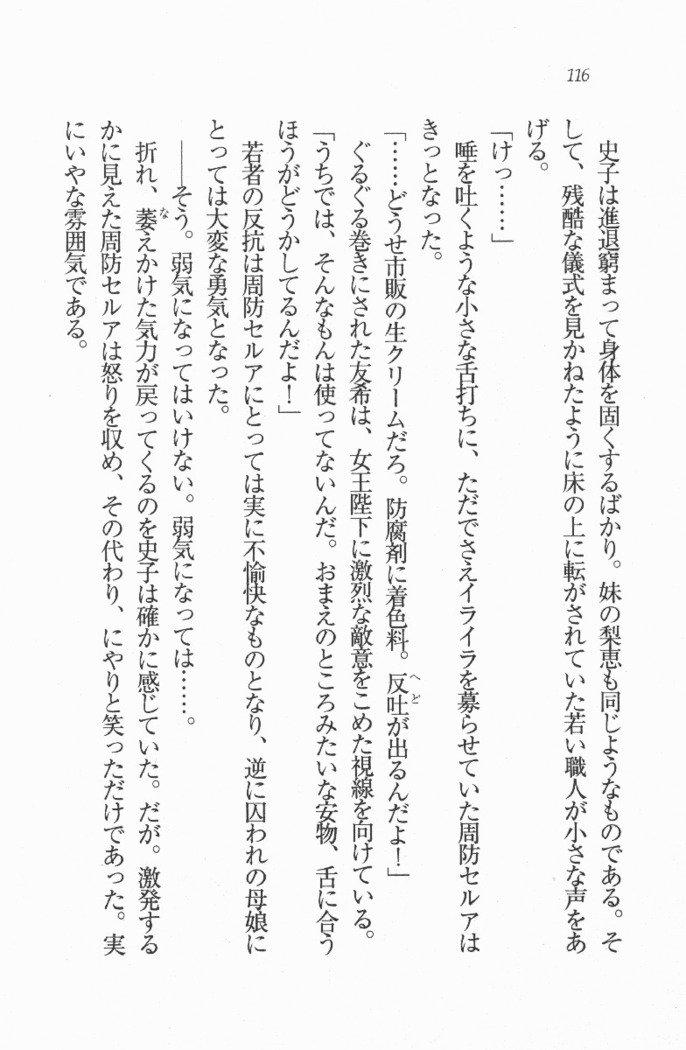 116
史子は進退窮まって身体を固くするばかり。妹の梨恵も同じようなものである。そ
して、残酷な儀式を見かねたように床の上に転がされていた若い職人が小さな声をあ
げる。
「けっ……」
唾を吐くような小さな舌打ちに、ただでさえイライラを募らせていた周防セルアは
きっとなった。
「……どうせ市販の生クリームだろ。防腐剤に着色料。反吐が出るんだよ！」
ぐるぐる巻きにされた友希は、女王陛下に激烈な敵意をこめた視線を向けている。
「うちでは、そんなもんは使ってないんだ。おまえのところみたいな安物、舌に合う
ほうがどうかしてるんだよ！」
若者の反抗は周防セルアにとっては実に不愉快なものとなり、逆に囚われの母娘に
とっては大変な勇気となった。
――そう。弱気になってはいけない。弱気になっては……。
折れ、萎えかけた気力が戻ってくるのを史子は確かに感じていた。だが。激発する
かに見えた周防セルアは怒りを収め、その代わり、にやりと笑っただけであった。実
にいやな雰囲気である。